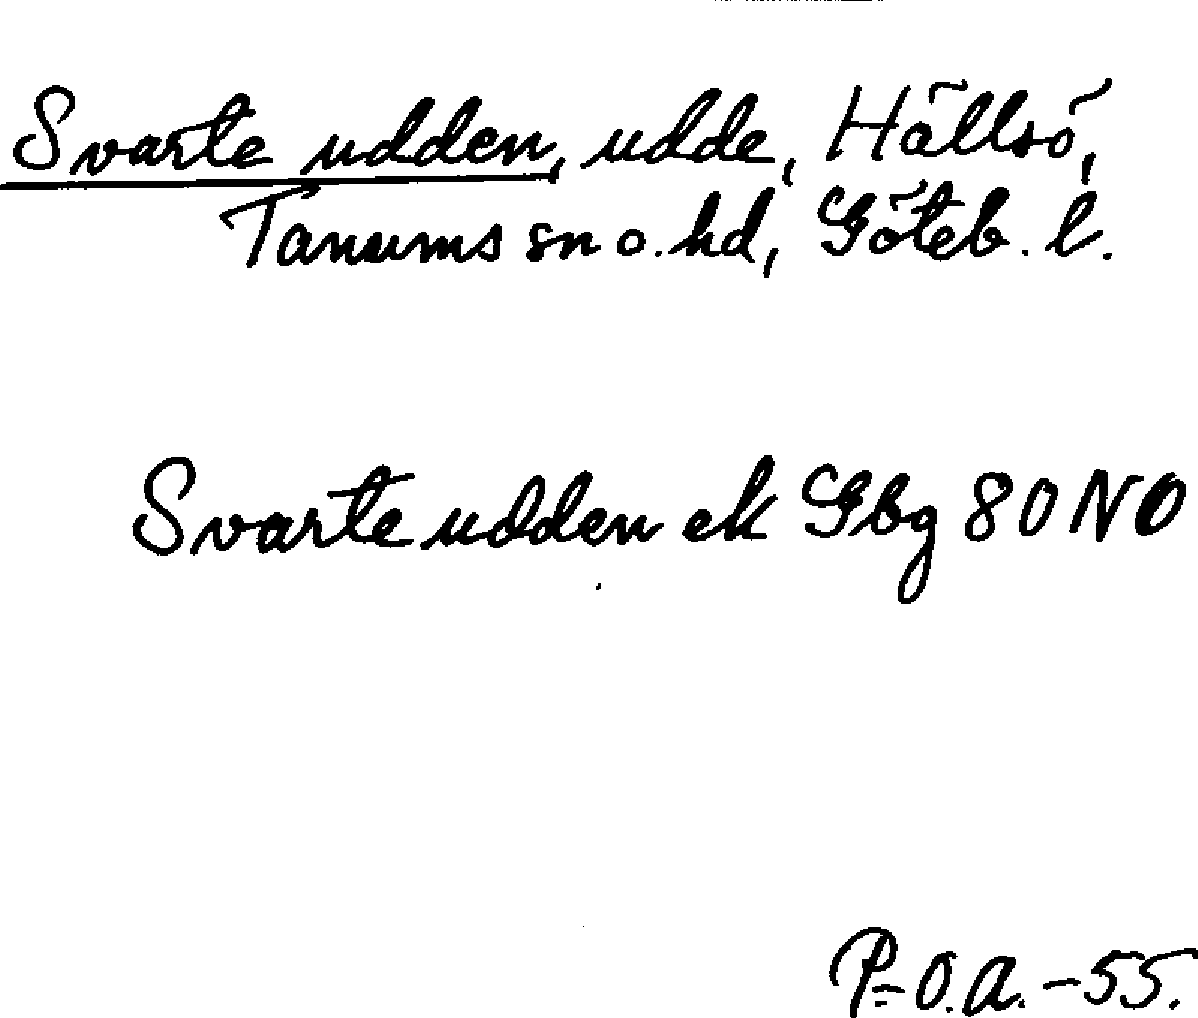 Svarte udden, udde, Hällsö,
Tanums sn o. hd, Göteb. l.
Svarte udden ek Gbg 80 NO
P-O.A. -55.